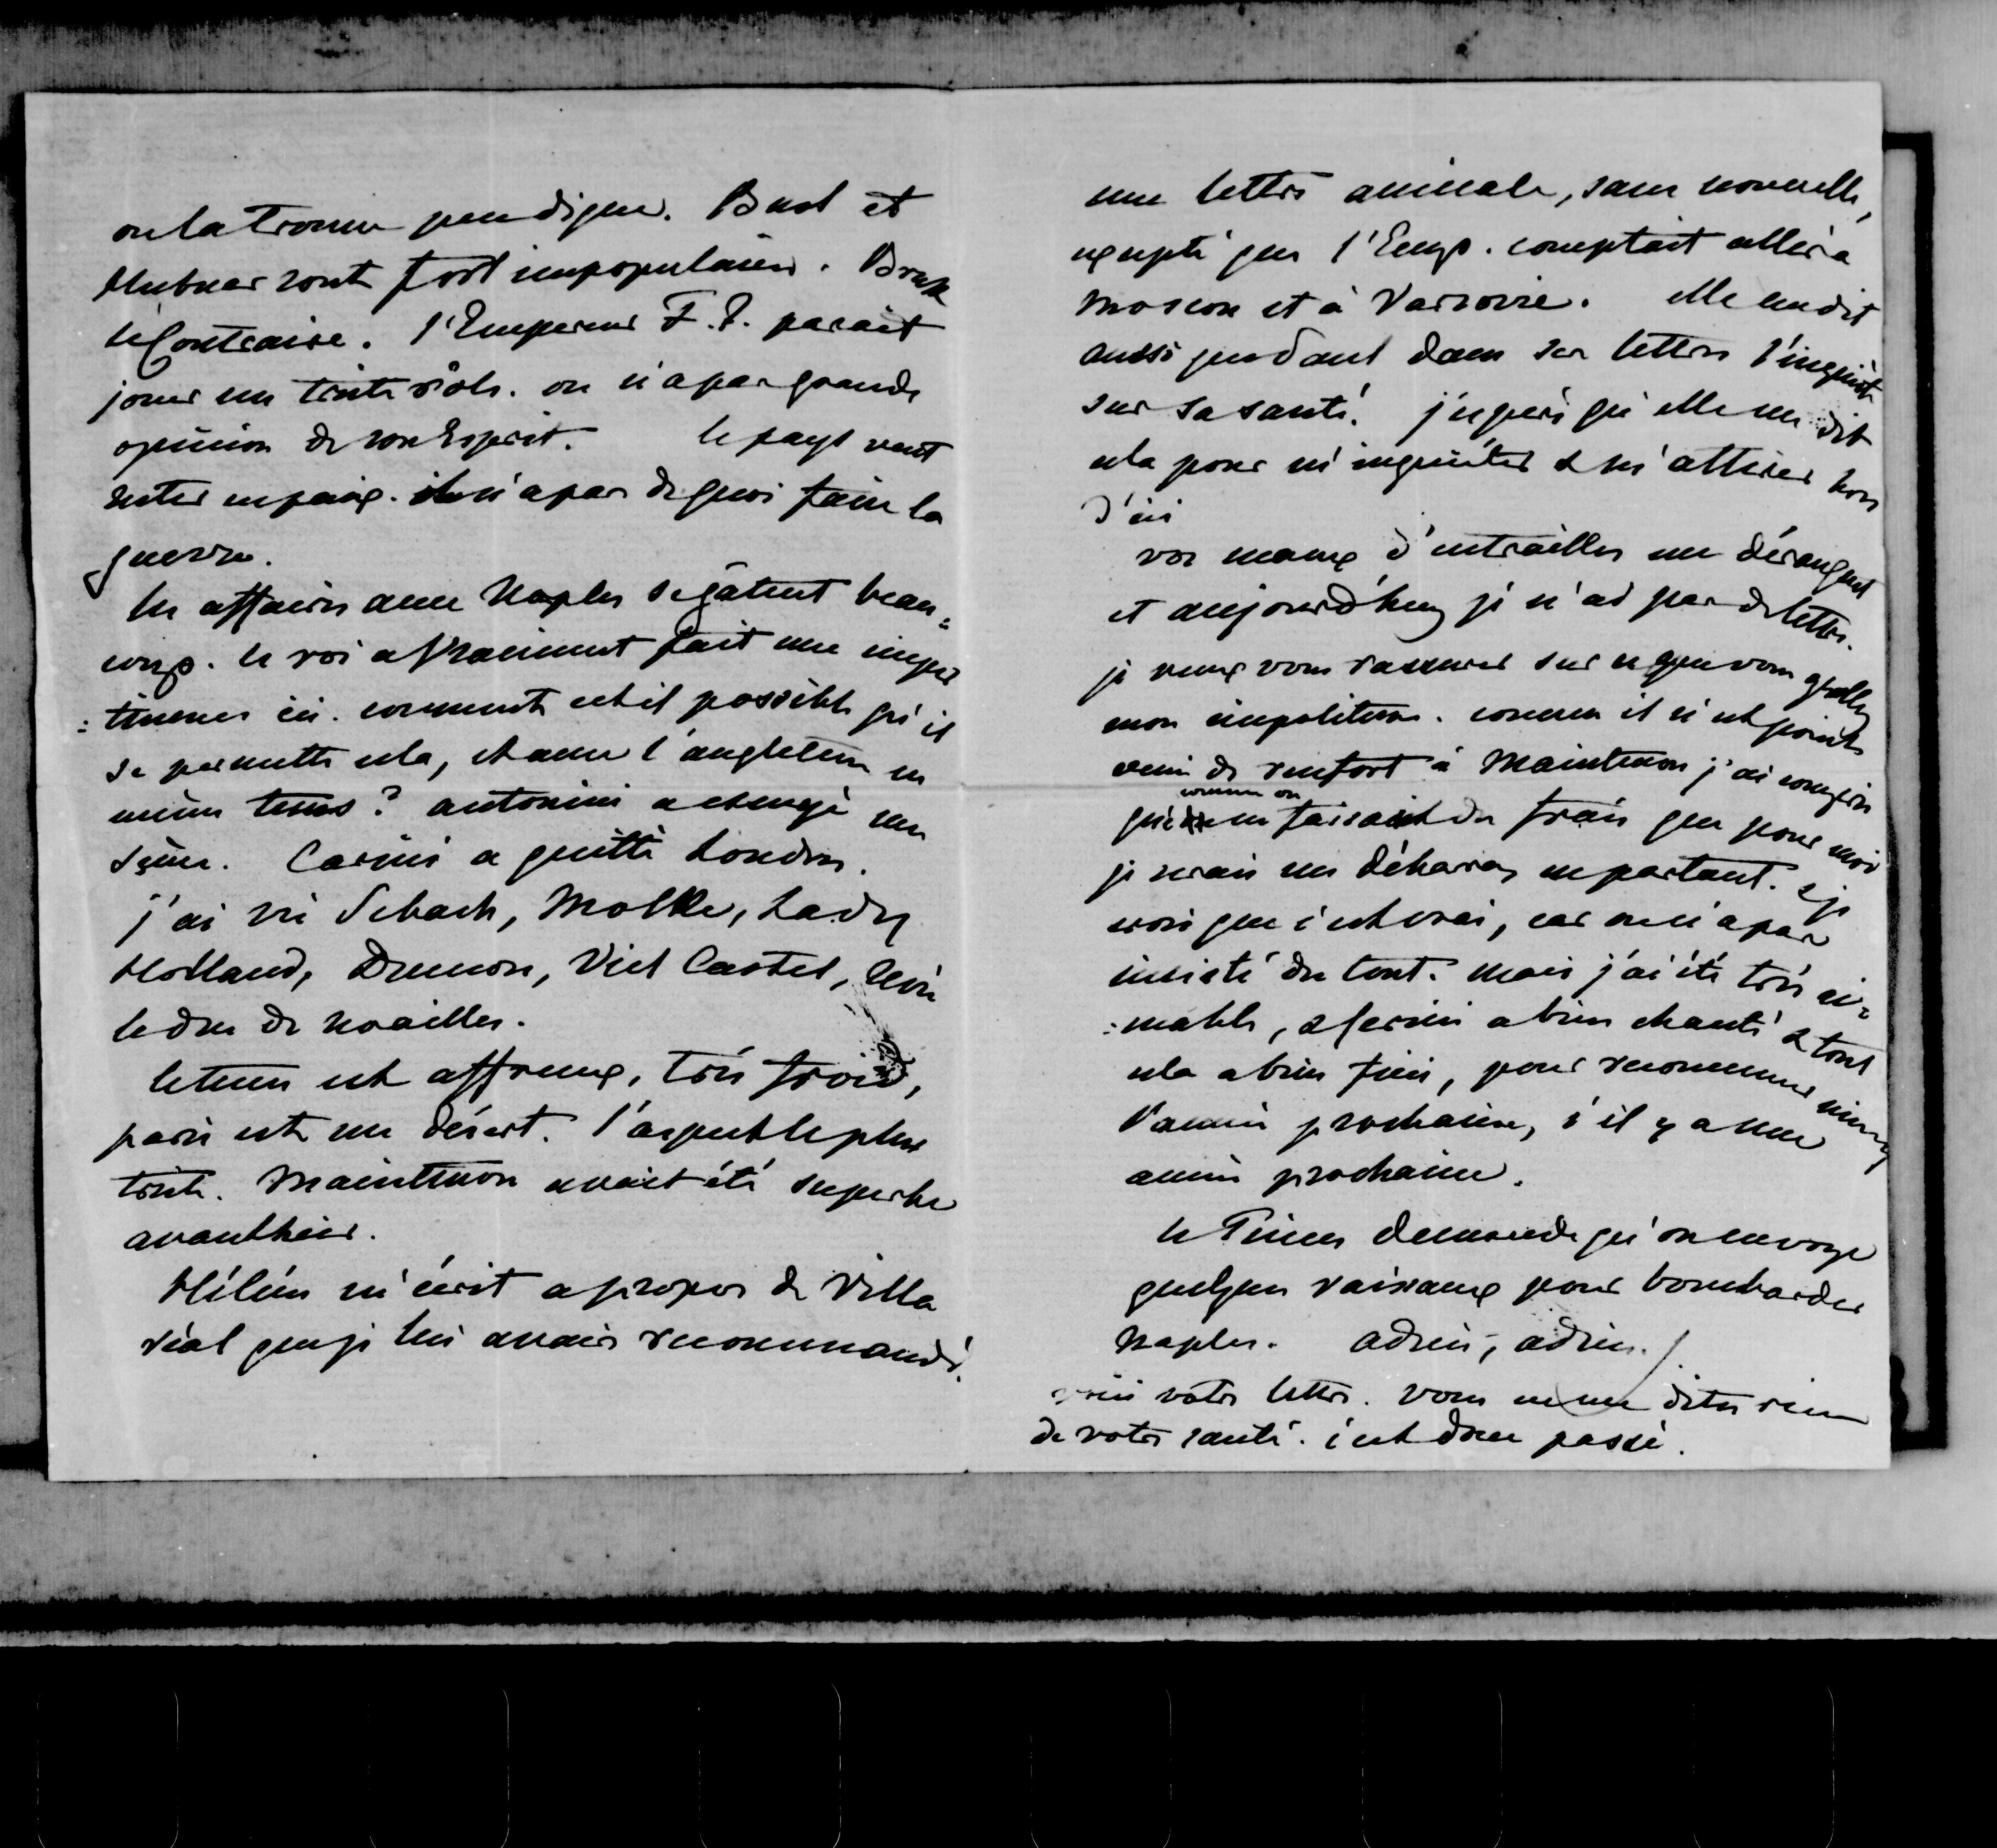 on la trouve peu digne. Buol et
Hubner sont fort impopulaires. Bruck
le Contraire. l'Empereur F. J. parait
jouer un triste rôle. on n'a pas grande
opinion de son Esprit. le pays veut
rester en paix. il n'a pas de quoi faire la
guerre.
les affaires avec Naples se gâtent beau=
coup. le roi a vraiment fait une imper
=tinence ici. comment est il possible qu'il
se permette cela, et avec l'angleterre en
même tems? antonini a changé
Carini a quitté Londres.
j'ai vu Sebach, Molke, Lady
Holland, Dumon, Viel Castel,
le duc de noailles.
le tems est affreux, très froid,
paris est un désert. l'aspect le plus
triste. Maintenon avait été superbe
avanthier.
Hélène m'écrit a propos de Villa
réal que je lui avais recommandé.
une lettre amicale, sans nouvelle,
excepté que l'Emp. comptait aller à
Moscou et à Varsovie. elle me dit
aussi pendant dans sa lettre s'inquiète
sur sa santé. j'espère qu'elle me dit
cela pour m'inquiéter & m'attirer hors
d'ici
vos maux d'entrailles me dérangent
et aujourd'huy je n'ai pas de lettre.
je veux vous rassurer sur ce que vous
mon impolitesse. comme il n'est point
venu de renfort à Maintenon j'ai compris
comme on
qu' en faisait des frais que pour moi
je serais un débaras en partant. & je
crois que c'est vrai, car on n'a pas
insisté du tout. mais j'ai été très ai=
=mable, & ferini a bien chanté & tout
cela a bien fini, pour recommencer mieux
l'année prochaine, s'il y a une
année prochaine.
le Times demande qu'on envoye
quelques vaisseaux pour bombarder
Naples. adieu, adieu.
votre lettre. vous ne me dites rien
de votre santé. c'est donc passé.